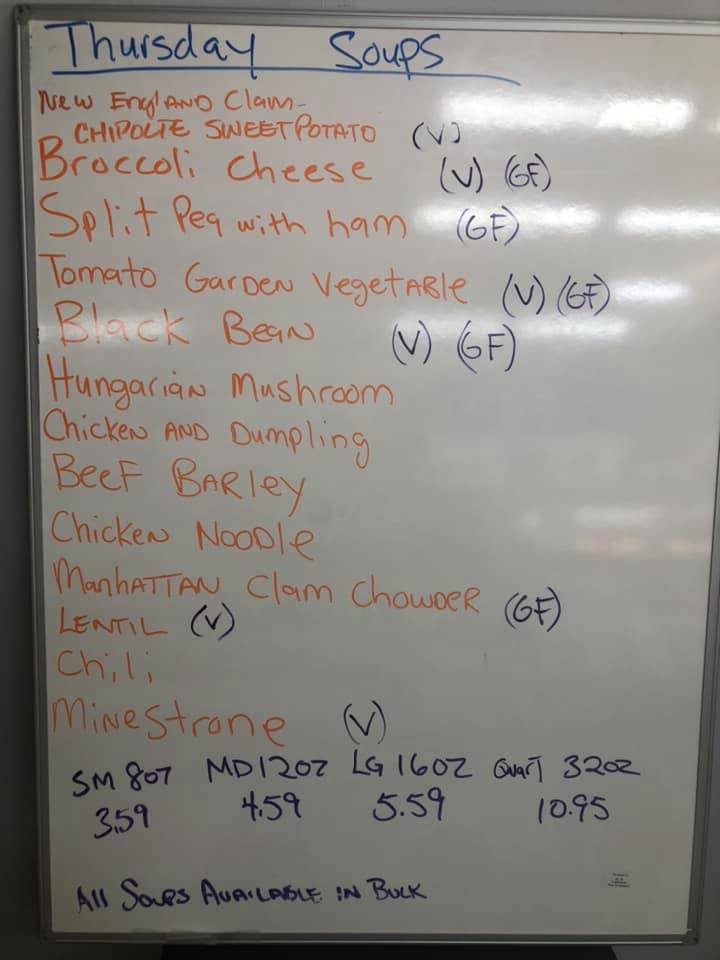 Thursday Soups
New England Clam-
CHIPOLTE SWEET POTATO (V)
Broccoli Cheese (V) (GF)
Split Pea with ham (GF)
Tomato Garden Vegetable (V) (GF)
Black Bean (V) (GF)
Hungarian Mushroom
Chicken AND Dumpling
Beef Barley
Chicken Noodle
Manhattan Clam Chowder (GF)
LENTIL (V)
Chili
Minestrone (V)
SM 8oz MD 12oz LG 16oz Quart 32oz
3.59 4.59 5.59 10.95
All Soups Available in Bulk